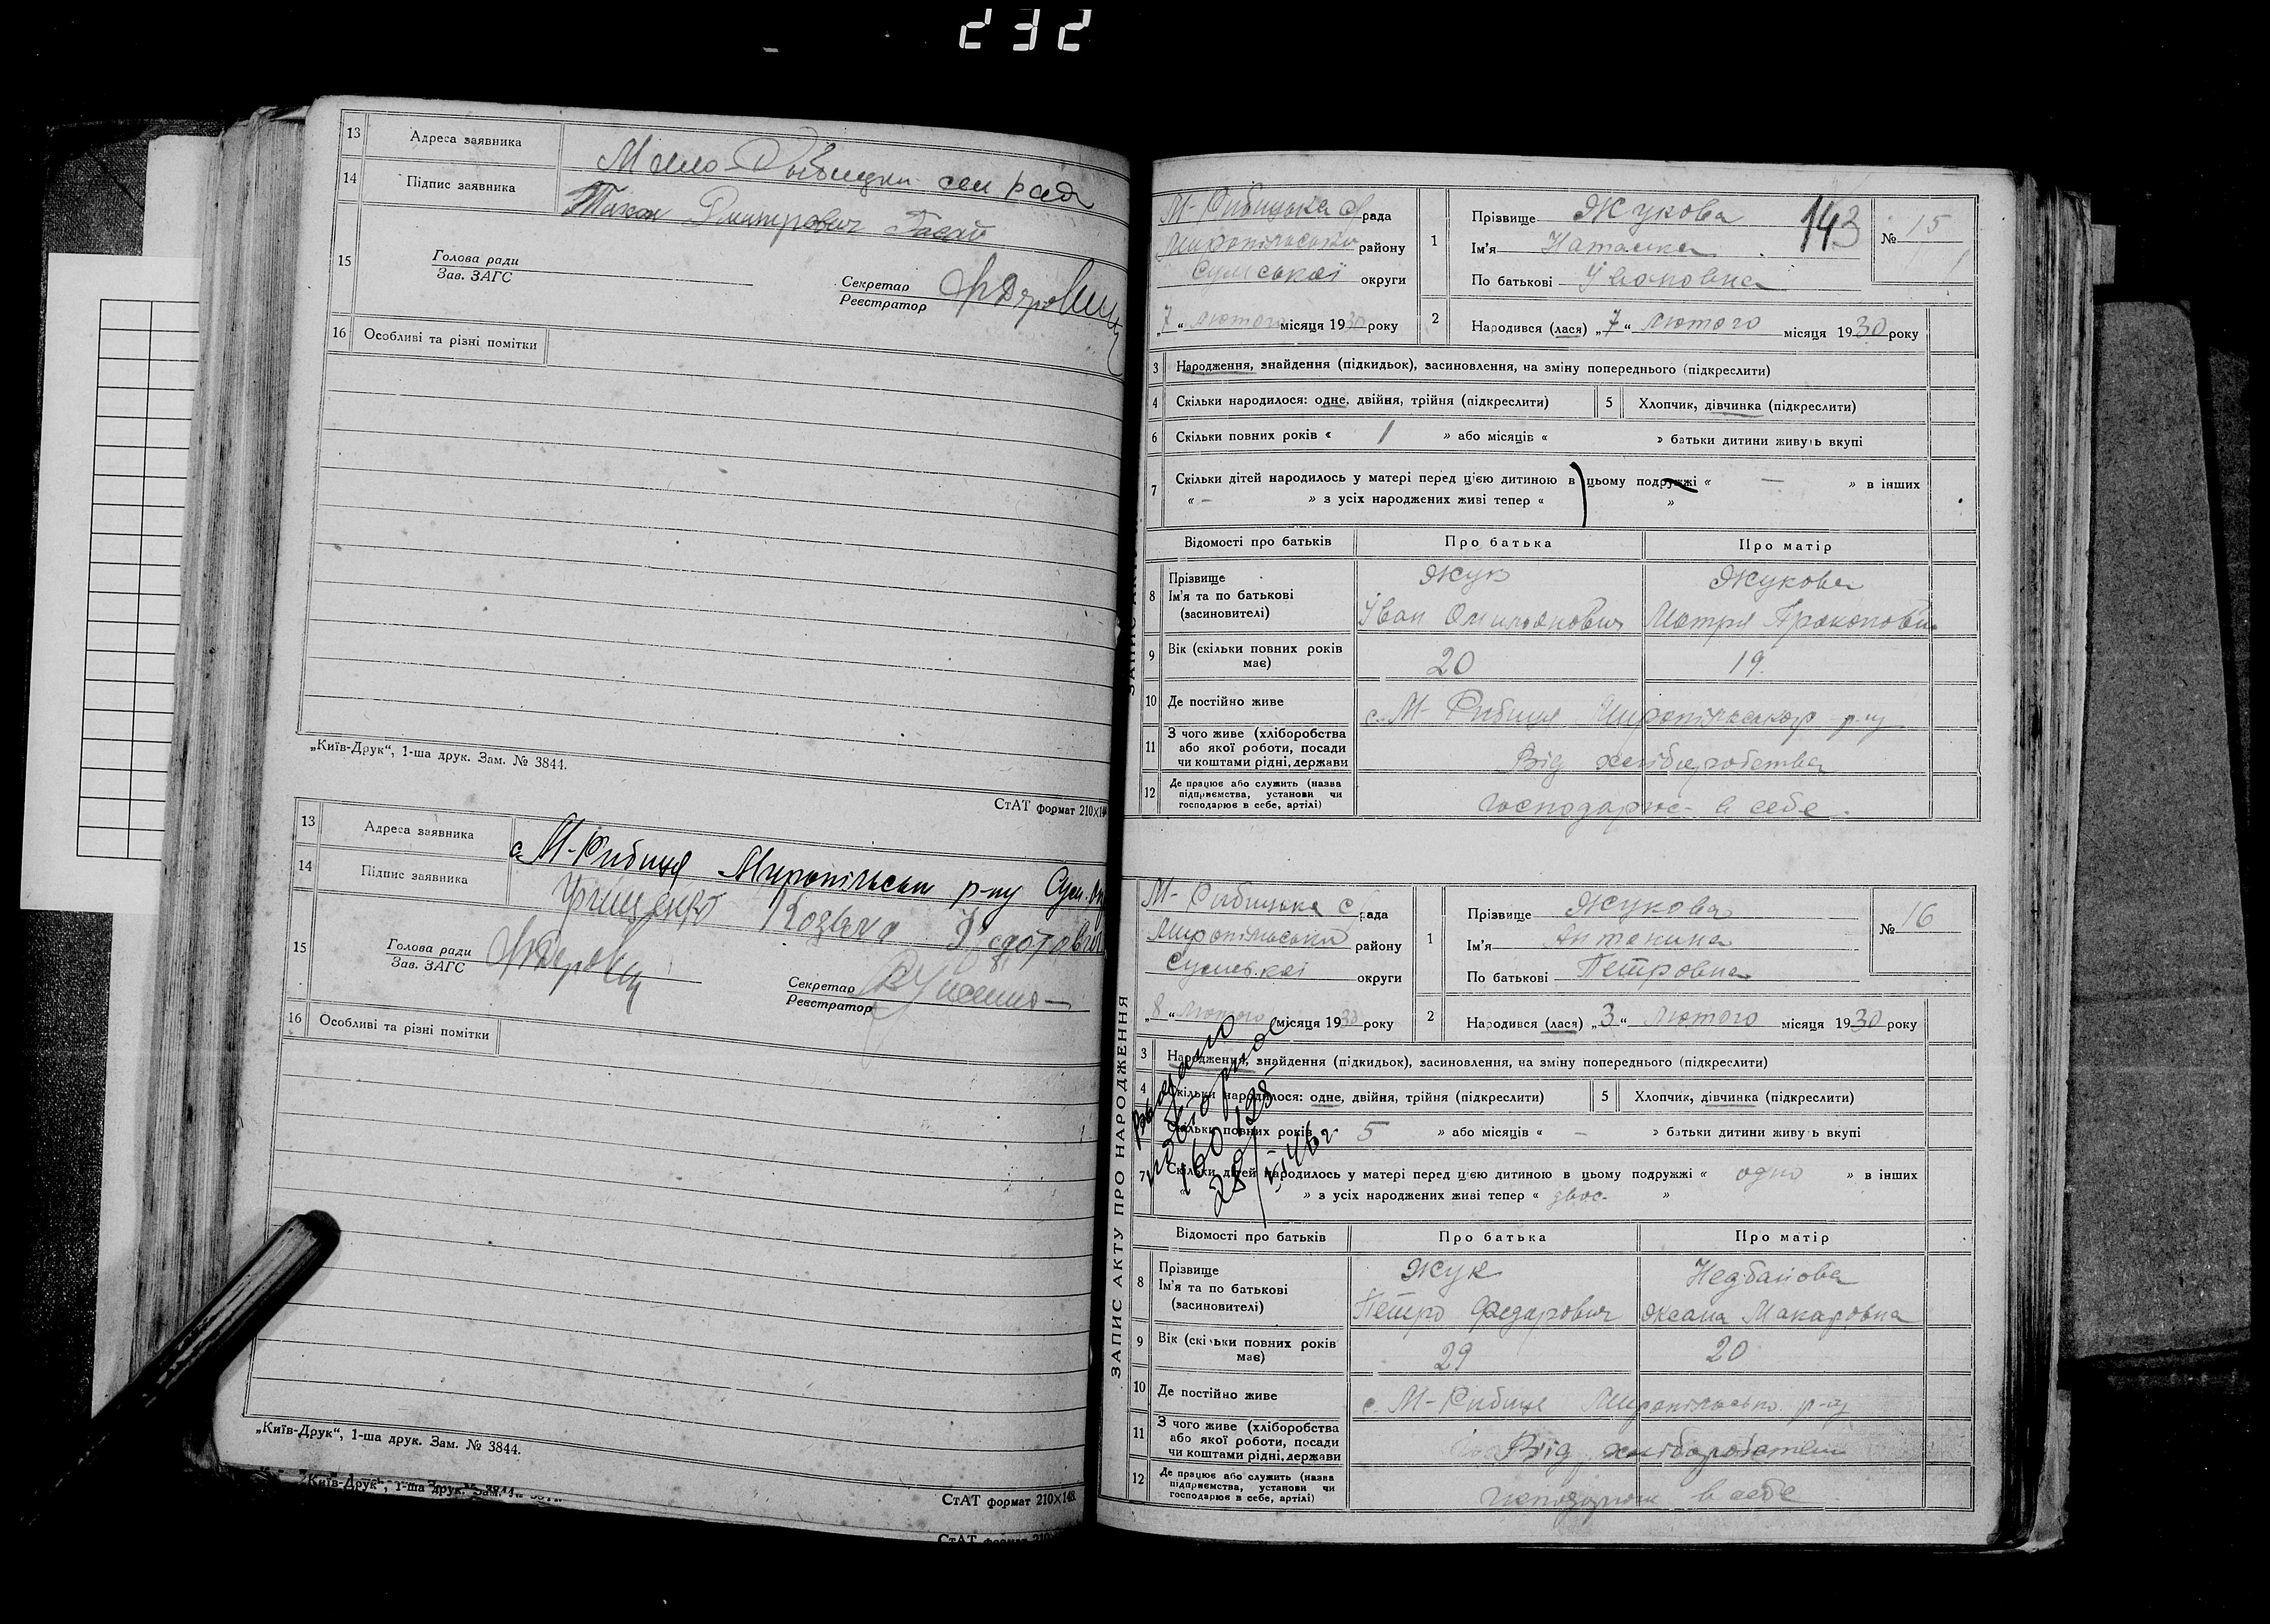 232
13 Адреса заявника Мало-Рыбицки сел рад
14 Підпис заявника Тихон Дмитрович
15 Голова ради
Зав. ЗАГС
Секретар
Реєстратор
16 Особливі та різні помітки
„Київ-Друк“, 1-ша друк. Зам. № 3844.
СтАТ формат 210×148
13 Адреса заявника с. М-Рибиця Миропільськ р-ну Сум. ок
14 Підпис заявника
15 Голова ради
Зав. ЗАГС
Секретар
Реєстратор
16 Особливі та різні помітки
„Київ-Друк“, 1-ша друк. Зам. № 3844.
СтАТ формат 210×148
„Київ-Друк“, 1-ша друк. Зам. № 3844.
СтАТ формат 210
143
М-Рибицька с/рада
Миропільськи району
Сумської округи
„7“ лютого місяця 1930 року
1 Прізвище Жукова
Ім'я Наташка
По батькові Івановна
№ 15
2 Народився (лася) „7“ лютого місяця 1930 року
3 Народження, знайдення (підкидьок), засиновлення, на зміну попереднього (підкреслити)
4 Скільки народилося: одне, двійня, трійня (підкреслити) 5 Хлопчик, дівчинка (підкреслити)
6 Скільки повних років « 1 » або місяців « » батьки дитини живуть вкупі
7 Скільки дітей народилось у матері перед цією дитиною в цьому подружжі « — » в інших
« — » з усіх народжених живі тепер « »
Відомості про батьків Про батька Про матір
8 Прізвище Жук Жукова
Ім'я та по батькові
(засновителі) Іван Омильянович Мотря Прокоповна
9 Вік (скільки повних років має) 20 19.
10 Де постійно живе с. М-Рибиця Миропільського р-ну
11 З чого живе (хліборобства
або якої роботи, посади
чи коштами рідні, держави Від хліборобства
12 Де працює або служить (назва
підприємства, установи чи
господарює в себе, артілі) Господарює в себе.
ЗАПИС АКТУ ПРО НАРОДЖЕННЯ
М-Рибицька с/рада
Миропільськи району
Сумської округи
„8“ лютого місяця 1930 року
1 Прізвище Жукова
Ім'я Антонина
По батькові Петровна
№ 16
2 Народився (лася) „3“ лютого місяця 1930 року
3 Народження, знайдення (підкидьок), засиновлення, на зміну попереднього (підкреслити)
4 Скільки народилося: одне, двійня, трійня (підкреслити) 5 Хлопчик, дівчинка (підкреслити)
Скільки повних років 5 » або місяців « — » батьки дитини живуть вкупі
7 Скільки дітей народилось у матері перед цією дитиною в цьому подружжі « одно » в інших
» з усіх народжених живі тепер « двоє »
Відомості про батьків Про батька Про матір
8 Прізвище Жук Недбайова
Ім'я та по батькові
(засиновителі) Петро Федорович Оксана Макаровна
9 Вік (скільки повних років має) 29 20
10 Де постійно живе с. М-Рибиця Миропільсько р-ну
11 З чого живе (хліборобства
або якої роботи, посади
чи коштами рідні, держави Від хліборобства
12 Де працює або служить (назва
підприємства, установи чи
господарює в себе, артілі) Господарює в себе